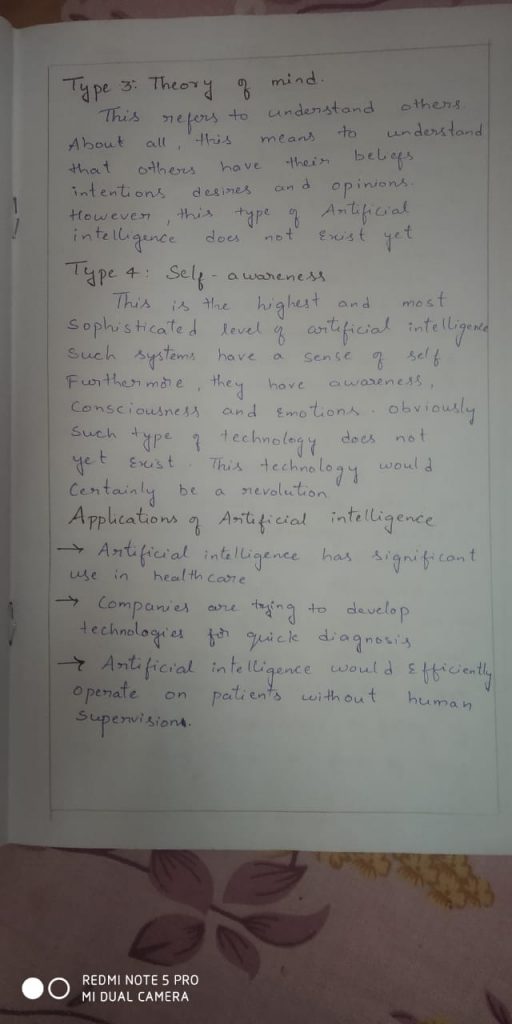 Type 3: Theory of mind.
This refers to understand others.
About all, this means to understand
that others have their beliefs
intentions desires and opinions.
However, this type of Artificial
intelligence does not Exist yet
Type 4: Self-awareness
This is the highest and most
Sophisticated level of artificial intelligence
Such systems have a sense of self
Furthermore, they have awareness,
Consciousness and Emotions. obviously
Such type of technology does not
yet Exist. This technology would
Certainly be a revolution
Applications of Artificial intelligence
→ Artificial intelligence has significant
use in healthcare
→ Companies are trying to develop
technologies for quick diagnosis
→ Artificial intelligence would Efficiently
operate on patients without human
Supervision.
REDMI NOTE 5 PRO
MI DUAL CAMERA